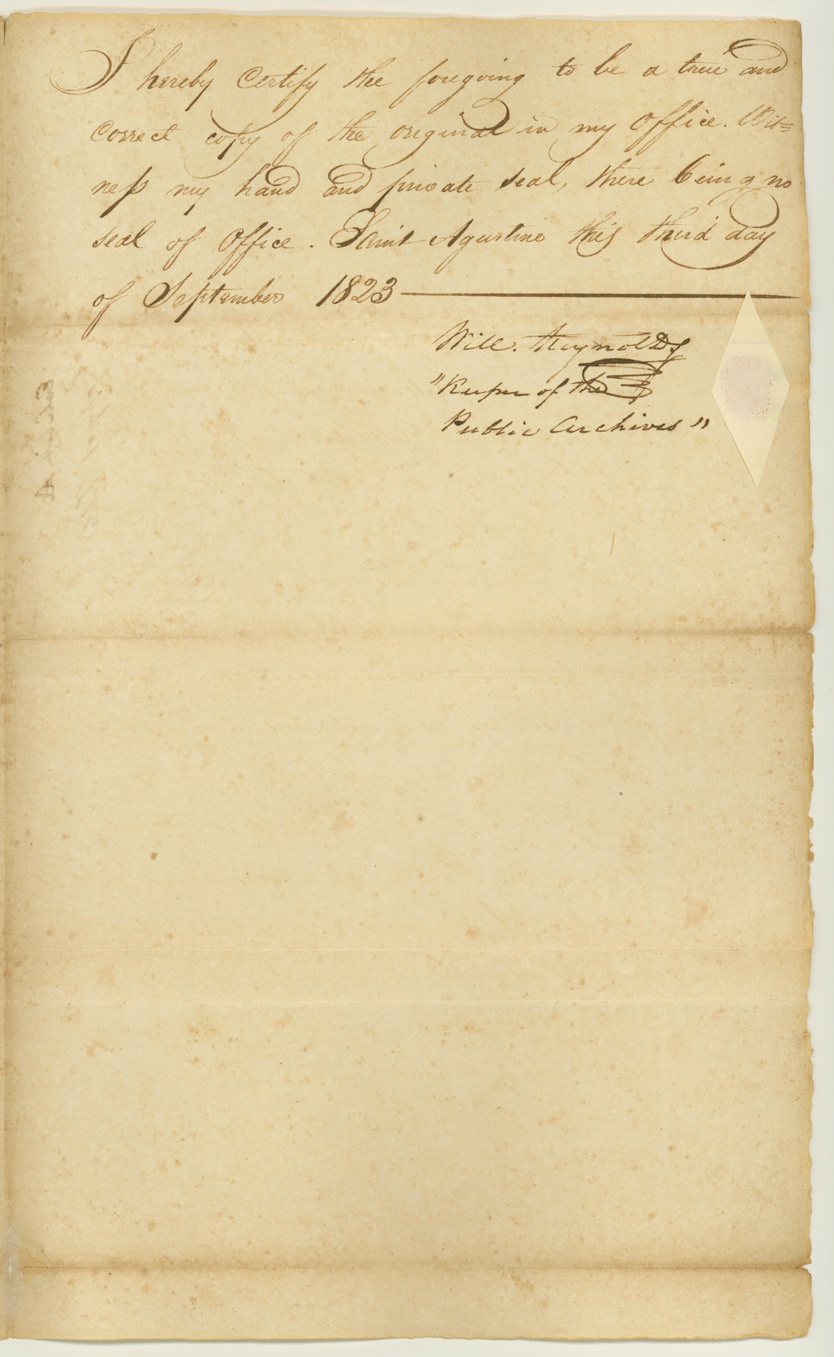 I hereby Certify the foregoing to be a true and
correct copy of the original in my Office. Wit=
ness my hand and private seal, there being no
seal of Office. Saint Agustine this third day
of September 1823
Will. Reynolds
"Keeper of the
Public Archives"